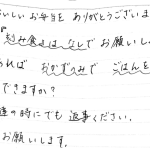 おいしいお弁当をありがとうございま
『刻み食』はなしでお願いし
あれば おかずのみで ごはんを
できますか?
達の時にでも返事ください。
お願いします。